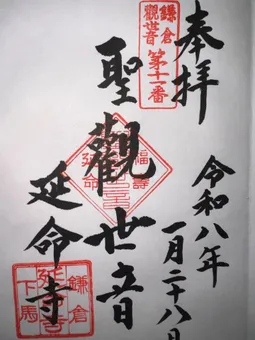 奉拝
鎌倉
觀世音
第十一番
令和八年
一月二十八日
聖觀世音
福壽
延命
延命寺
鎌倉
下馬